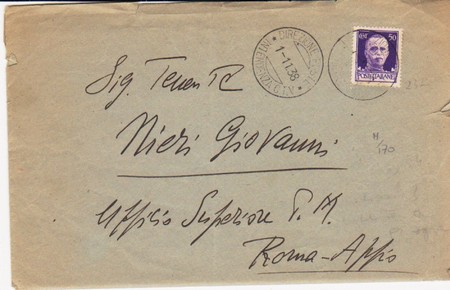 CENT 50
POSTE ITALIANE
DIREZIONE
1-11.38
Sig. Tenente
Nieri Giovanni
Ufficio Superiore P. M.
Roma-Appio
170